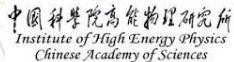 中国科学院高能物理研究所
Institute of High Energy Physics
Chinese Academy of Sciences